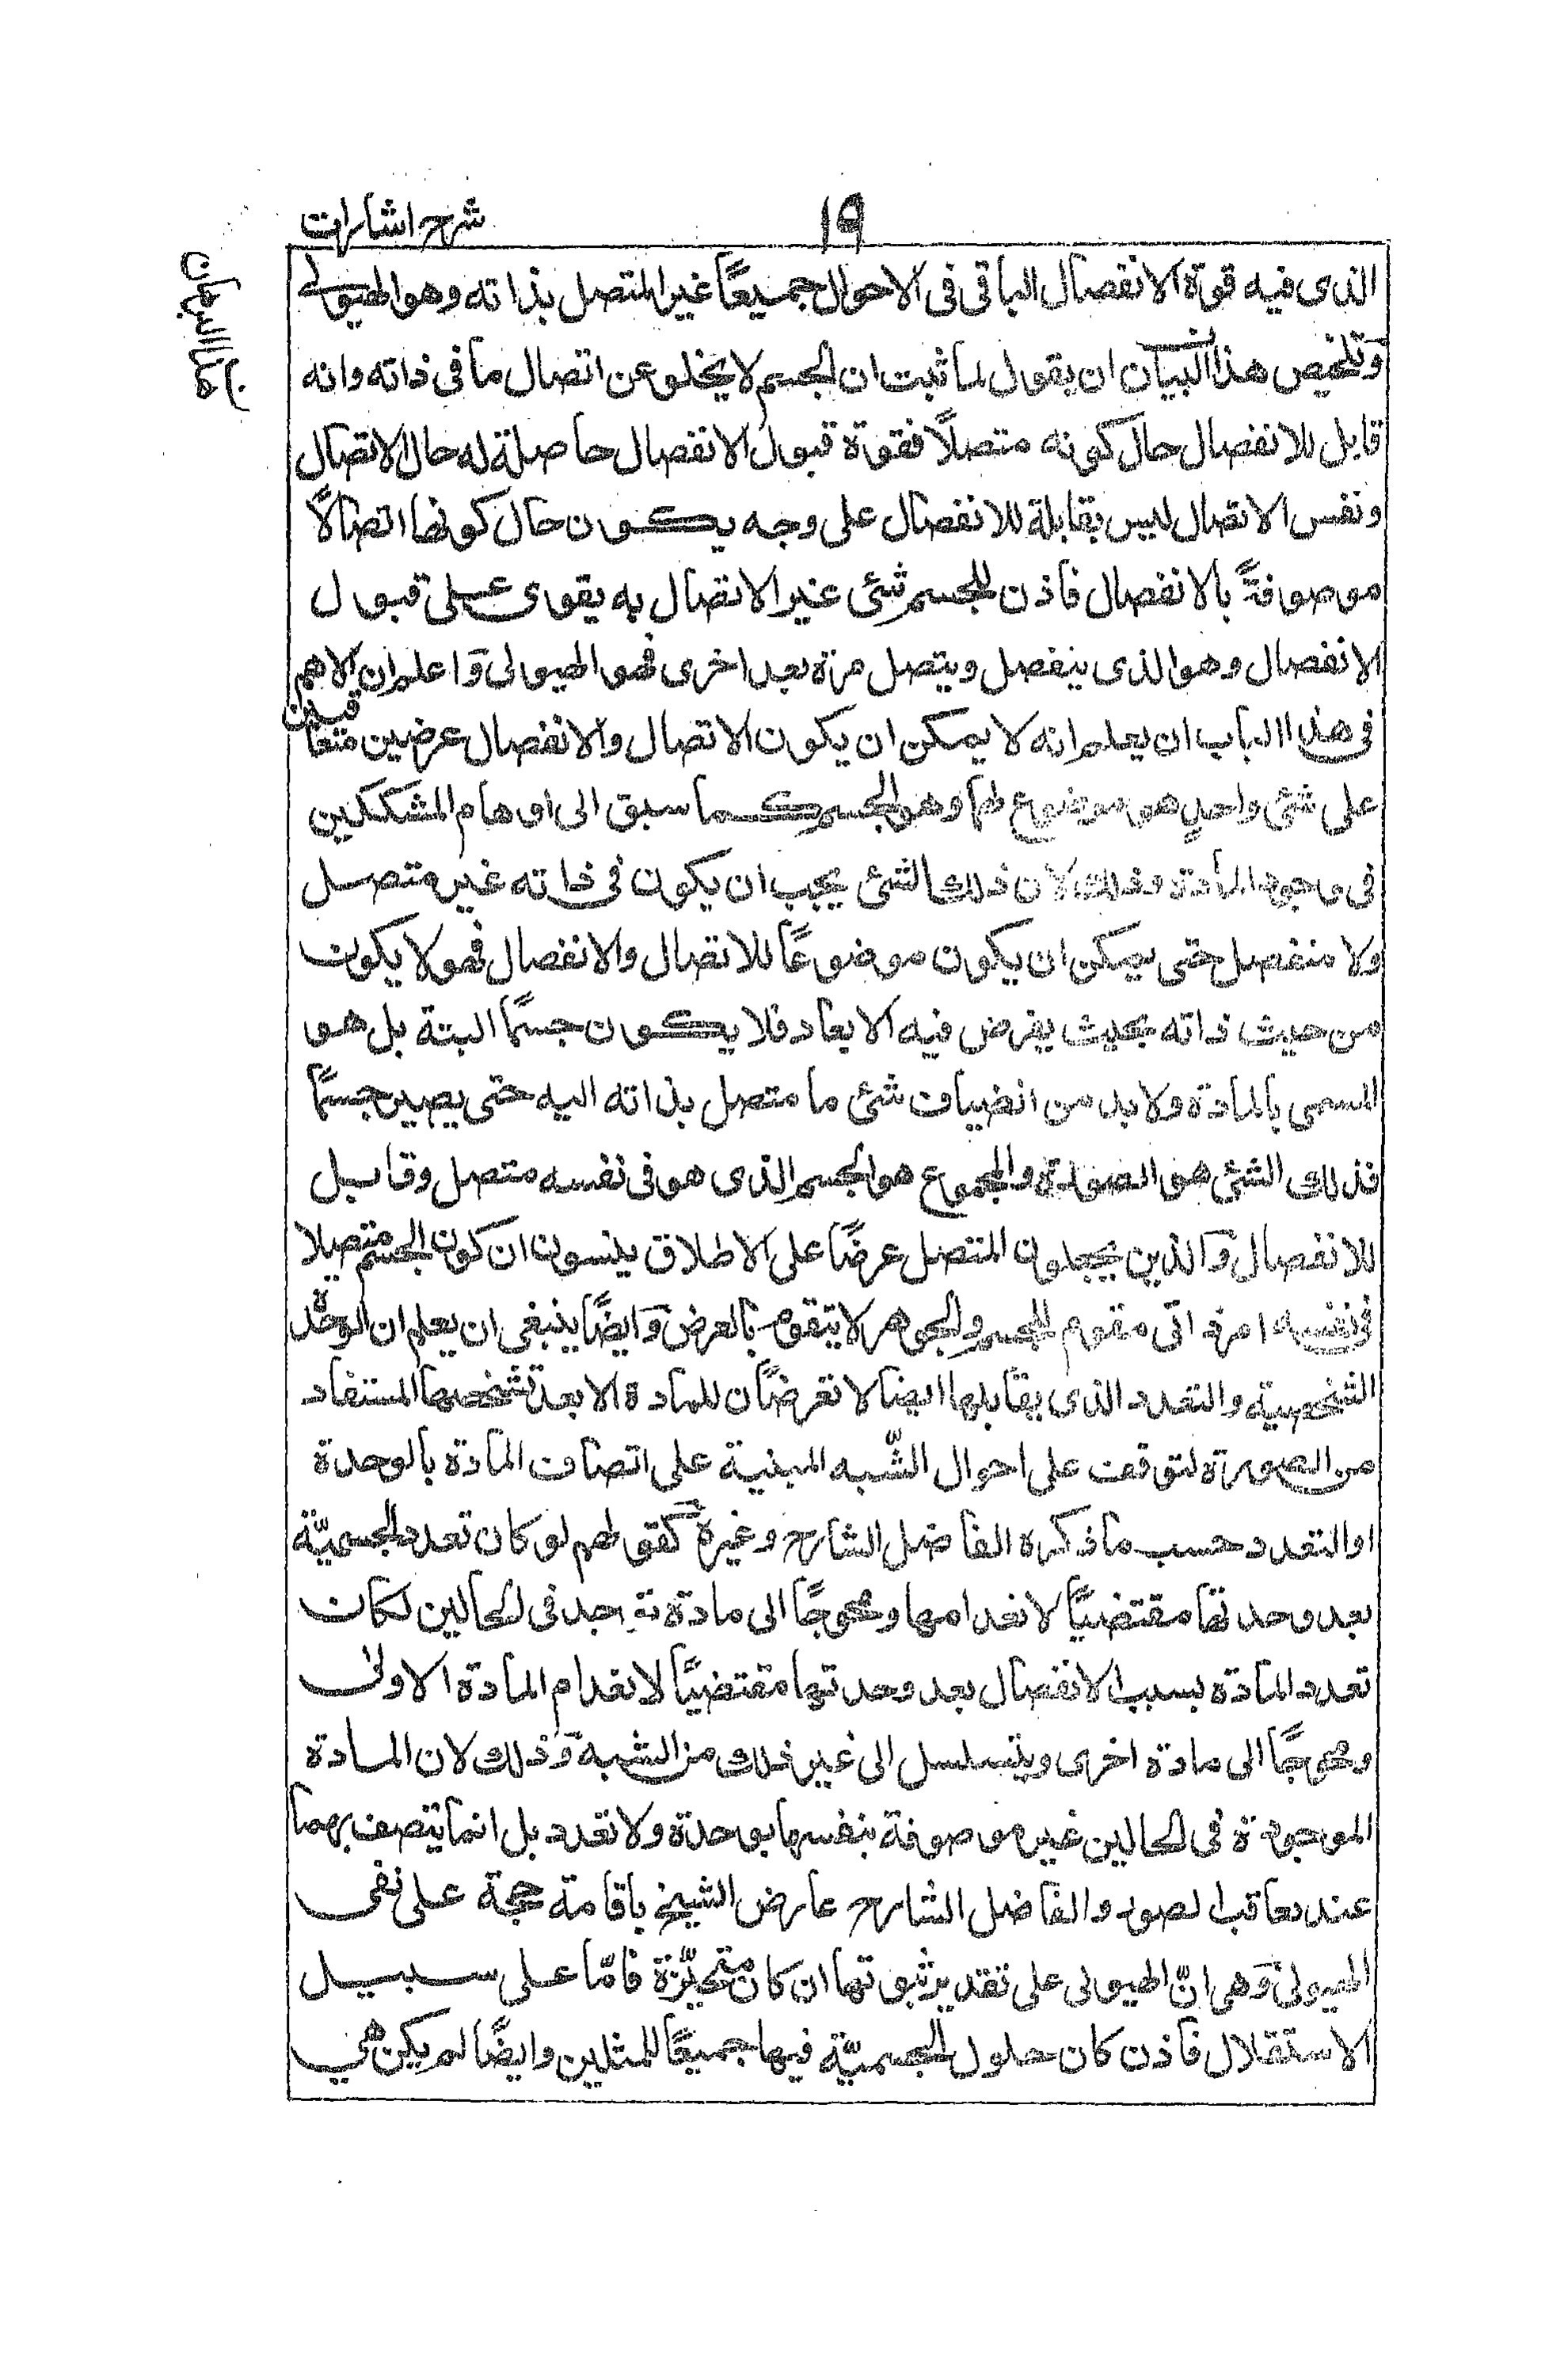 ١٩
شرح اشارات
الذى فيه قوة الانفصال الباقى فى الاحوال جميعًا غير المتصل بذاته وهو الهيولى
وتلخيص هذا البيان ان يقول لما ثبت ان الجسم لا يخلو عن اتصال ما فى ذاته وانه
قابل للانفصال حال كونه متصلًا فقوة قبول الانفصال حاصلة له حال الاتصال
ونفس الاتصال ليس بقابلة للانفصال على وجه يكون حال كونها اتصالًا
موصوفةً بالانفصال فاذن للجسم شئ غير الاتصال به يقوى على قبول
الانفصال وهو الذى ينفصل ويتصل مرة بعد اخرى فهو الهيولى واعلم ان الاهم
فى هذا الباب ان يعلم انه لا يمكن ان يكون الاتصال والانفصال عرضين متعاقبين
على شئ واحدٍ هو موضوع لهما وهو الجسم كما سبق الى اوهام المشككين
فى وجود المادة وذلك لان ذلك الشئ يجب ان يكون فى ذاته غير متصل
ولا منفصل حتى يمكن ان يكون موضوعًا للاتصال والانفصال فهو لا يكون
من حيث ذاته بحيث يفرض فيه الابعاد فلا يكون جسمًا البتة بل هو
المسمى بالمادة ولا بد من انضياف شئ ما متصل بذاته اليه حتى يصير جسمًا
فذلك الشئ هو الصورة والمجموع هو الجسم الذى هو فى نفسه متصل وقابل
للانفصال والذين يجعلون المتصل عرضًا على الاطلاق ينسون ان كون الجسم متصلا
فى نفسه امر ذاتى مقوم للجسم والجوهر لا يتقوم بالعرض وايضًا ينبغى ان يعلم ان الوحدة
الشخصية والتعدد الذى يقابلها ايضا لا تعرضان للمادة الا بعد تشخصها المستفاد
من الصورة لتوقف على احوال الشّبه المبنية على اتصاف المادة بالوحدة
او التعدد حسب ما ذكره الفاضل الشارح وغيره كقولهم لو كان تعدد الجسميّة
بعد وحدتها مقتضيًا لانعدامها ومحوجًا الى مادة توجد فى الحالين لكان
تعدد المادة بسبب الانفصال بعد وحدتها مقتضيًا لانعدام المادة الاولى
ومحوجًا الى مادة اخرى ويتسلسل الى غير ذلك من الشبه وذلك لان المادة
الموجودة فى الحالين غير موصوفة بنفسها بوحدة ولا تعدد بل انما يتصف بهما
عند تعاقب الصور والفاضل الشارح عارض الشيخ باقامة حجة على نفى
الهيولى وهى انّ الهيولى على تقدير ثبوتها ان كان متحيّزة فامّا على سبيل
الاستقلال فاذن كان حلول الجسميّة فيها جميعًا للمثلين وايضًا لم يكن هى